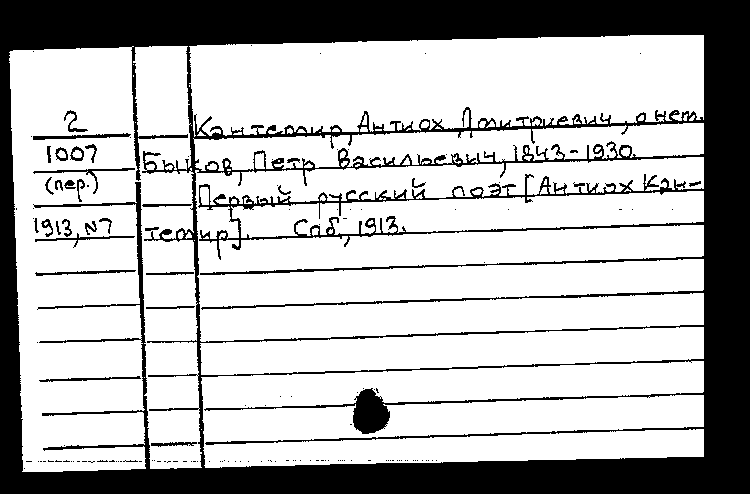 2 Кантемир, Антиох Дмитриевич, о нем.
1007 Быков, Петр Васильевич, 1843-1930.
(пер.) Первый русский поэт [Антиох Кан-
1913, N7 темир]. Спб., 1913.